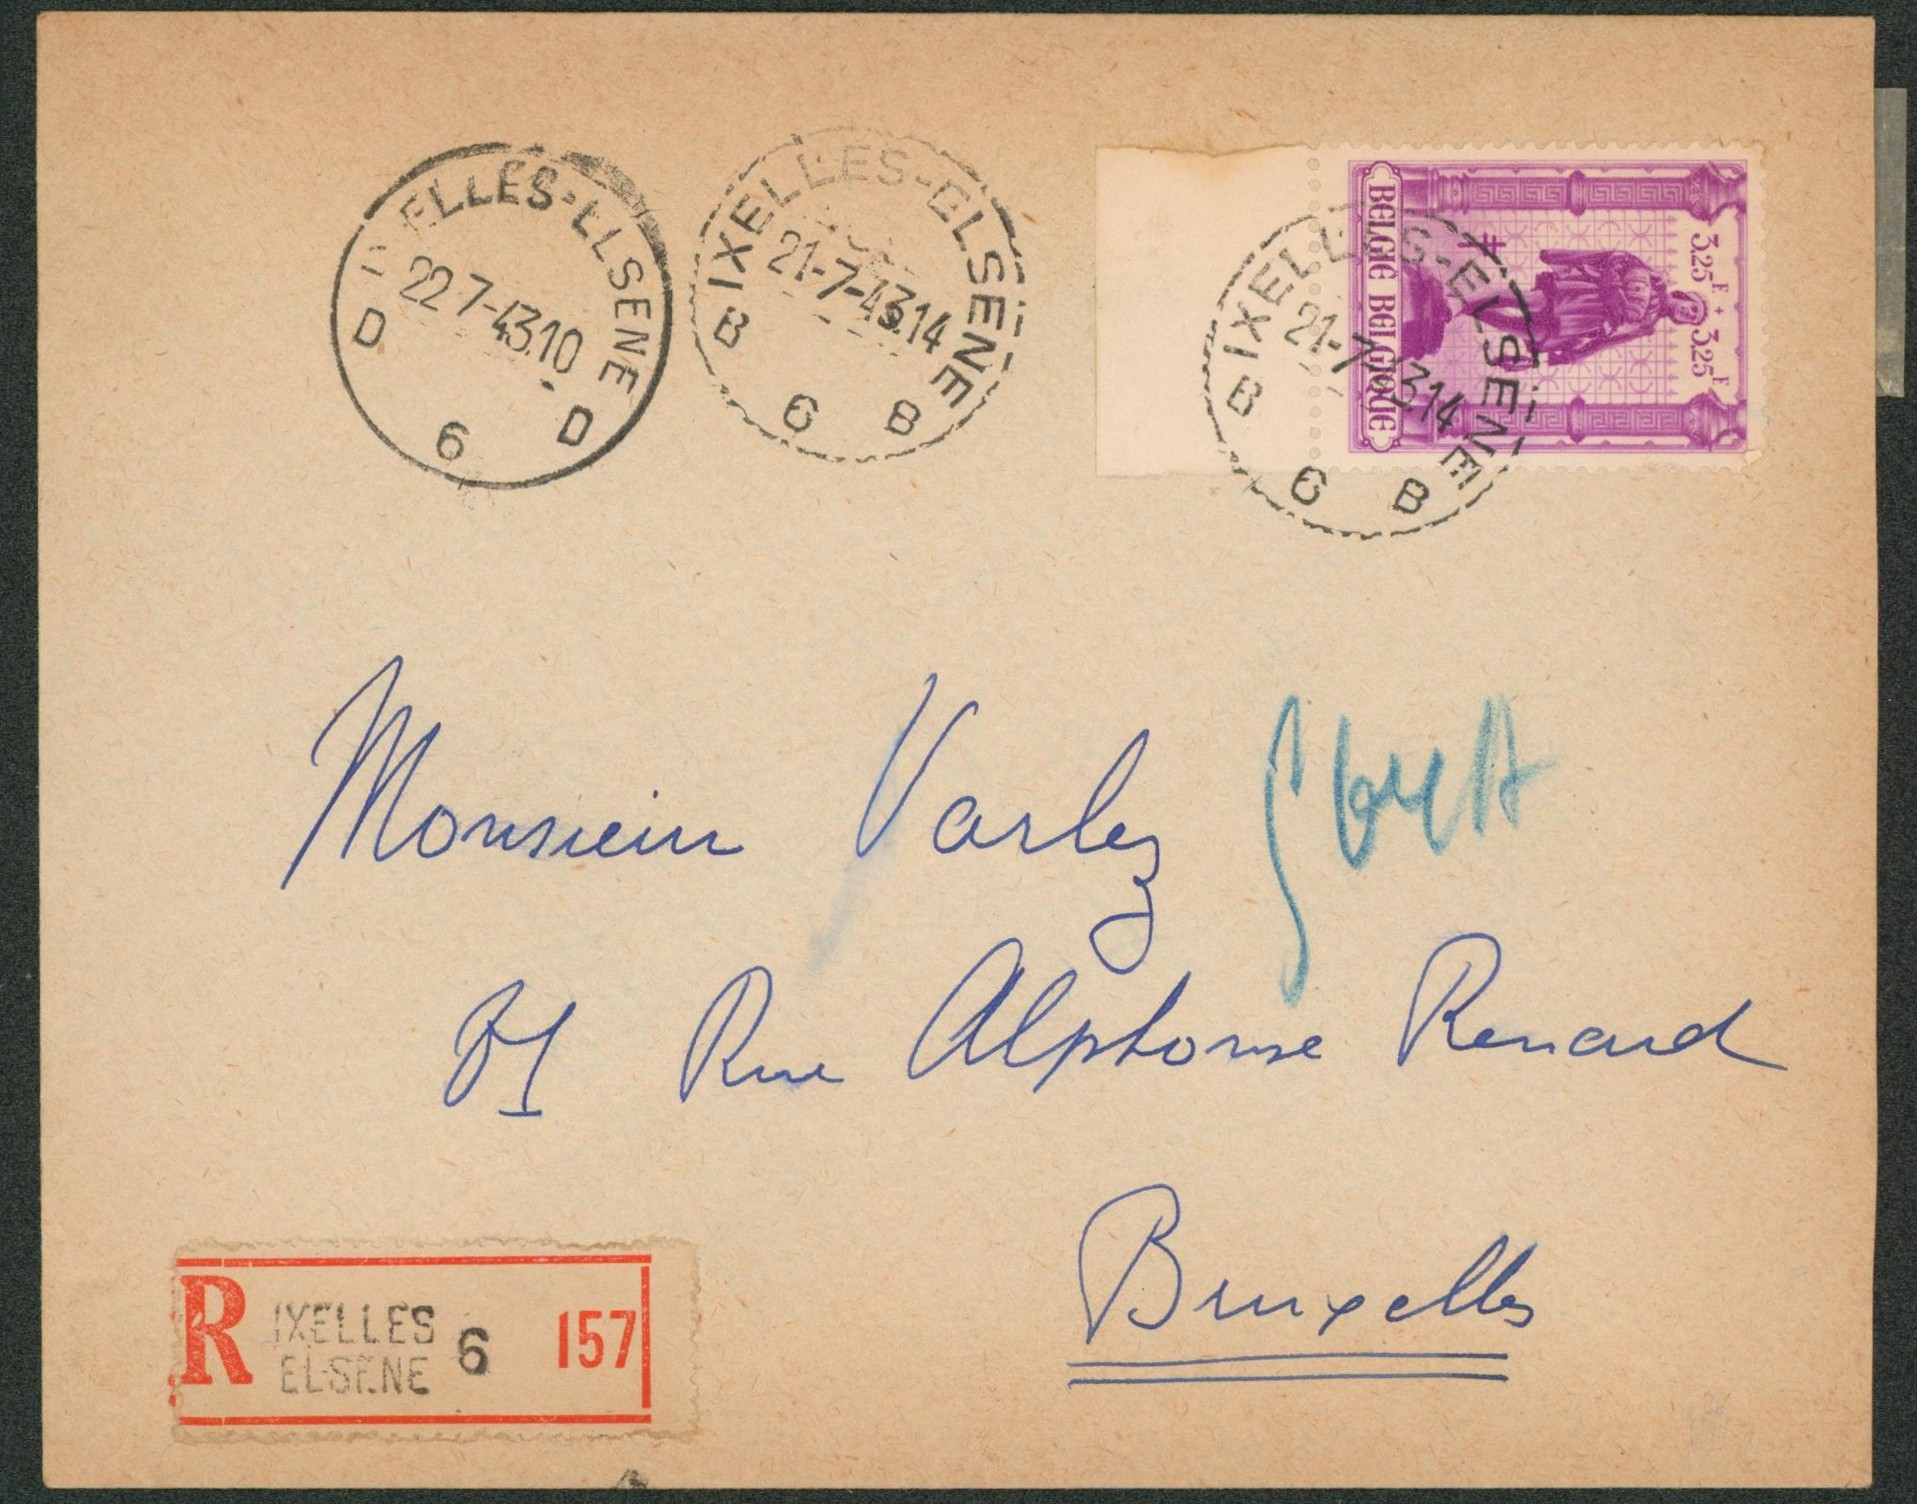 IXELLES-ELSENE
22 7-43.10
D 6 D
IXELLES-ELSENE
21-7-43.14
B 6 B
BELGIE BELGIQUE
3.25 F + 3.25 F
IXELLES-ELSENE
21-7-43.14
B 6 B
Monsieur Varlez
Rue Alphonse Renard
Bruxelles
R IXELLES
ELSENE 6 157